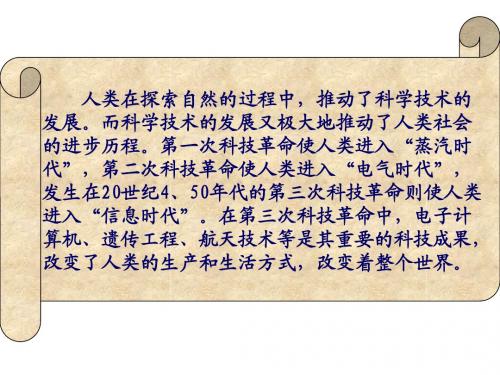 人类在探索自然的过程中，推动了科学技术的
发展。而科学技术的发展又极大地推动了人类社会
的进步历程。第一次科技革命使人类进入“蒸汽时
代”，第二次科技革命使人类进入“电气时代”，
发生在20世纪4、50年代的第三次科技革命则使人类
进入“信息时代”。在第三次科技革命中，电子计
算机、遗传工程、航天技术等是其重要的科技成果，
改变了人类的生产和生活方式，改变着整个世界。